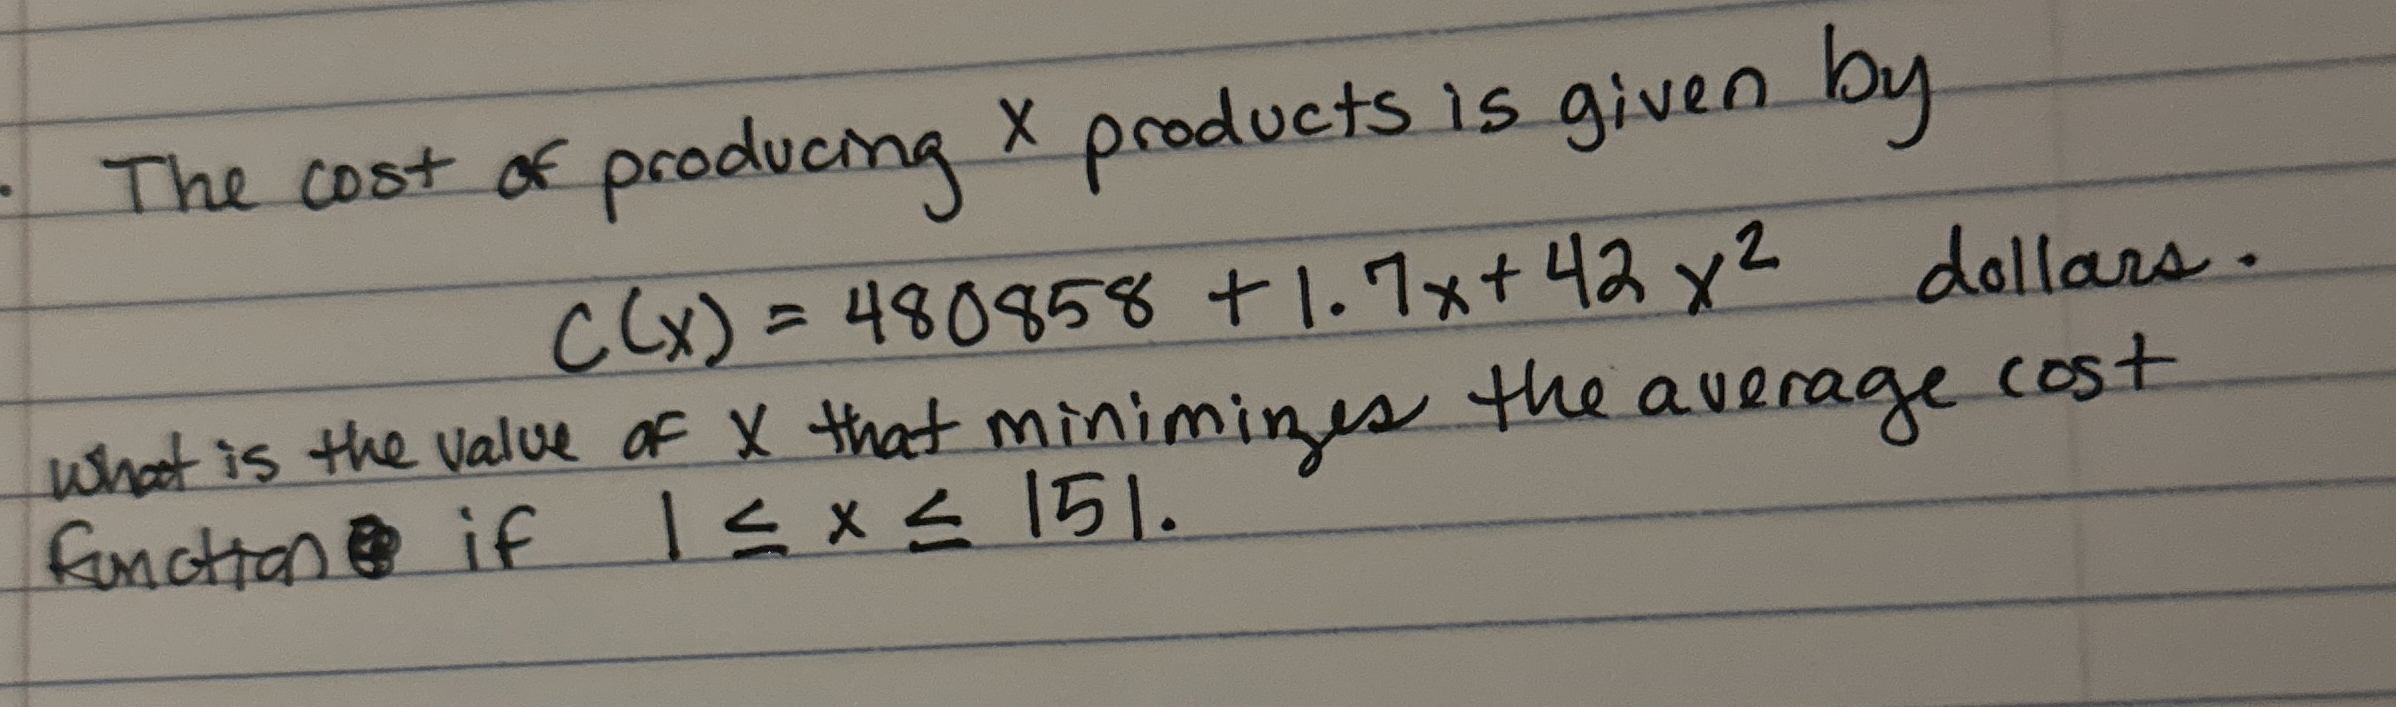 . The cost of producing x products is given by
C(x) = 480858 + 1.7x + 42x² dollars.
What is the value of x that minimizes the average cost
function if 1 ≤ x ≤ 151.